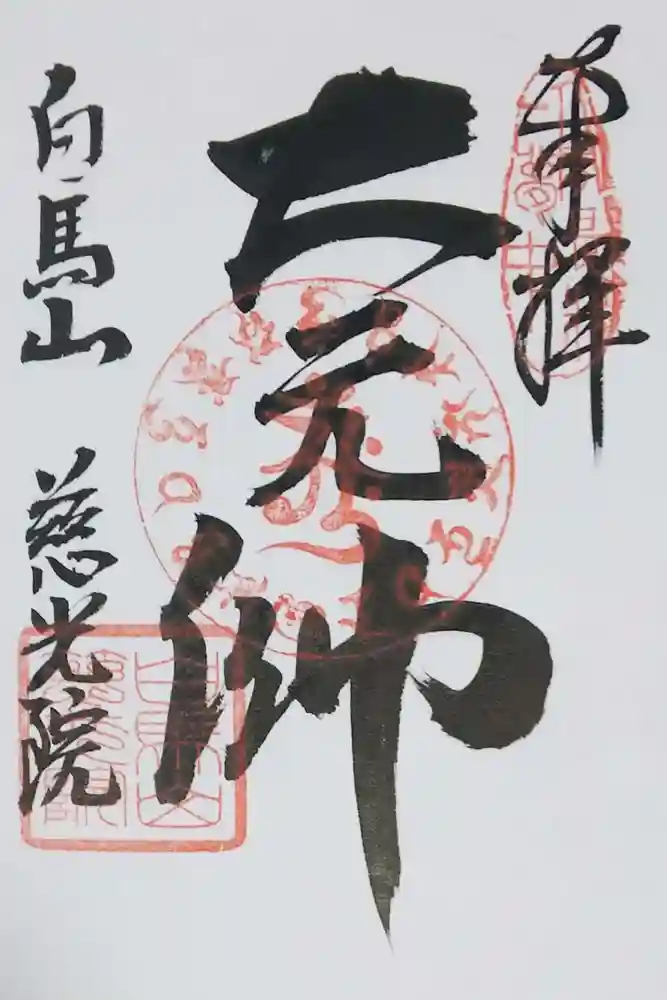 奉拝
大元帥
白馬山 慈光院